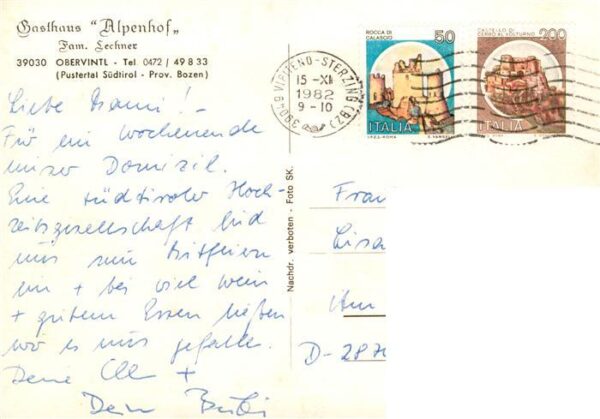 Gasthaus "Alpenhof"
Fam. Lechner
39030 OBERVINTL · Tel. 0472 / 49833
(Pustertal Südtirol - Prov. Bozen)
Liebe !-
Für ein Wochenende
unser Domizil.
Eine südtiroler Hoch-
zeitsgesellschaft lud
uns zum Mitfeiern
ein + bei viel Wein
+ gutem Essen ließen
wir es uns gefallen.
Deine +
Dein
Nachdr. verboten - Foto SK.
39049 VIPITENO-STERZING (BZ)
15-XI
1982
9-10
ROCCA DI
CALASCIO
50
ITALIA
CASTELLO DI
CERRO AL VOLTURNO
200
ITALIA
Frau
Lisa
Am
D-287